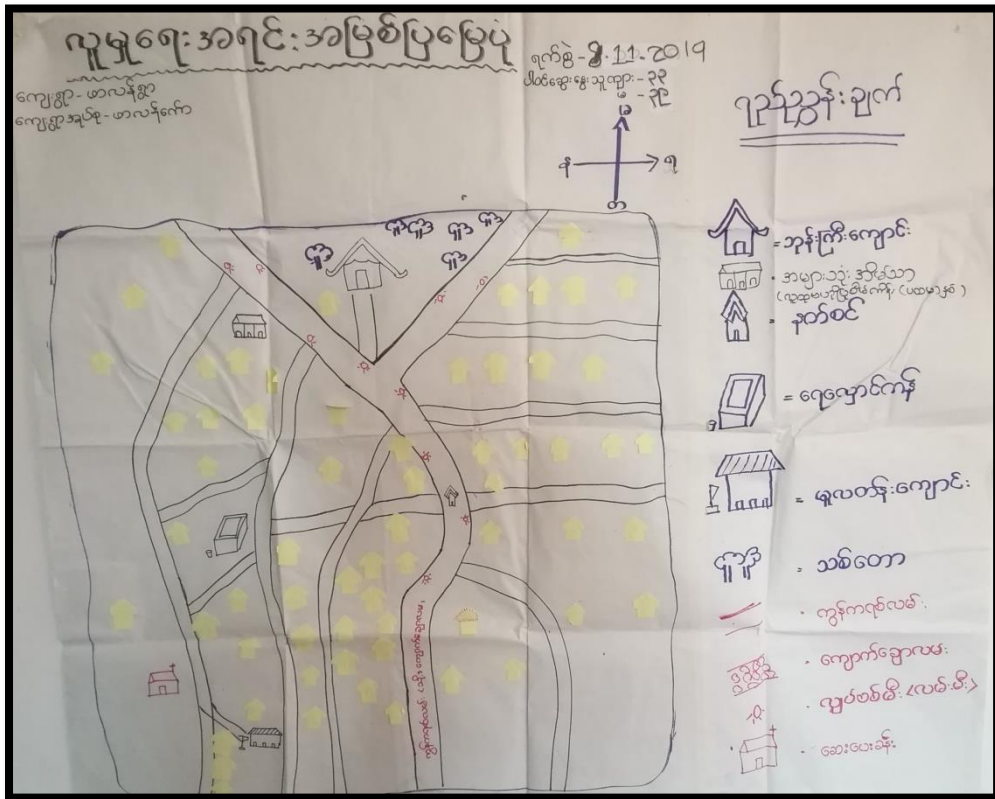 လူမှုရေးအရင်းအမြစ်ပြမြေပုံ
ရက်စွဲ - 8.11.2019
ပါဝင်ဆွေးနွေးသူကျား - ၃၃
မ - ၃၉
ကျေးရွာ - ဟာလန်ရွာ
ကျေးရွာအုပ်စု - ဟာလန်ကော်
မ
န
ရ
တ
ရည်ညွှန်းချက်
= ဘုန်းကြီးကျောင်း
အများသုံး အိမ်သာ
= နတ်စင်
= ရေလှောင်ကန်
= မူလတန်းကျောင်း
သစ်တော
ကွန်ကရစ်လမ်း
ကျောက်ချောလမ်း
လျှပ်စစ်မီး (လမ်းမီး)
ဆေးပေးခန်း